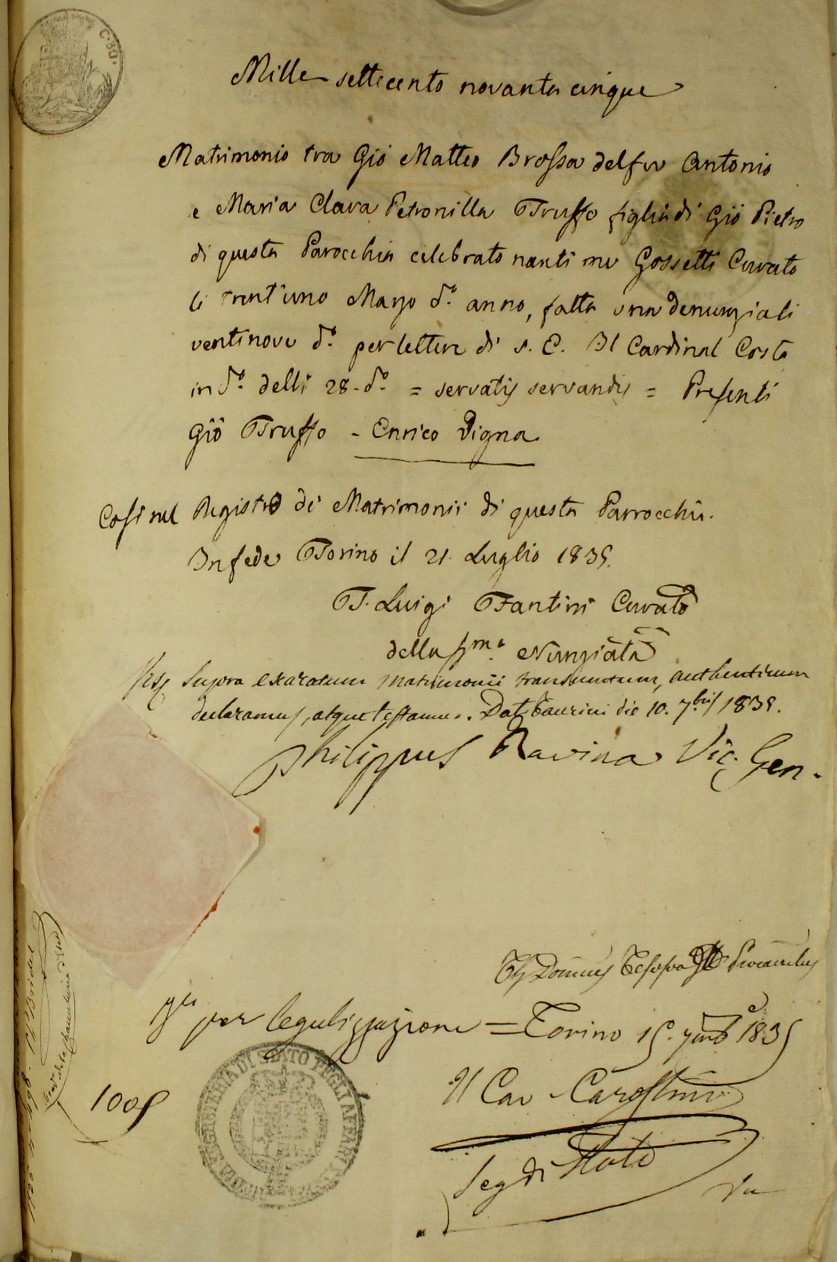 C. 80.
Mille settecento novanta cinque
Matrimonio tra Giò Matteo Brossa del fu Antonio
e Maria Clara Petronilla Truffo figlia di Giò Pietro
di questa Parocchia celebrato nanti me Gossetti Curato
li trent'uno Marzo d.° anno, fatta una denunzia li
ventinove d.° per lettere di S. E. Il Cardinal Costa
in d.° delli 28. d.° = servatis servandis = Presenti
Giò Truffo - Enrico Vigna
Così nel Registro di Matrimonii di questa Parrocchia.
In fede Torino il 21. Luglio 1835.
T. Luigi Fantini Curato
della SS.ma Nunziata
supra exaratum matrimonii transumtum, authenticum
declaramus, atque testamur. Dat. Taurini die 10. 7bris 1835.
Philippus Ravina Vic. Gen.
per legalizzazione = Torino 15. 1835
Il Cav
Seg di Stato
1005
SEGRETERIA DI STATO PEGLI AFFARI